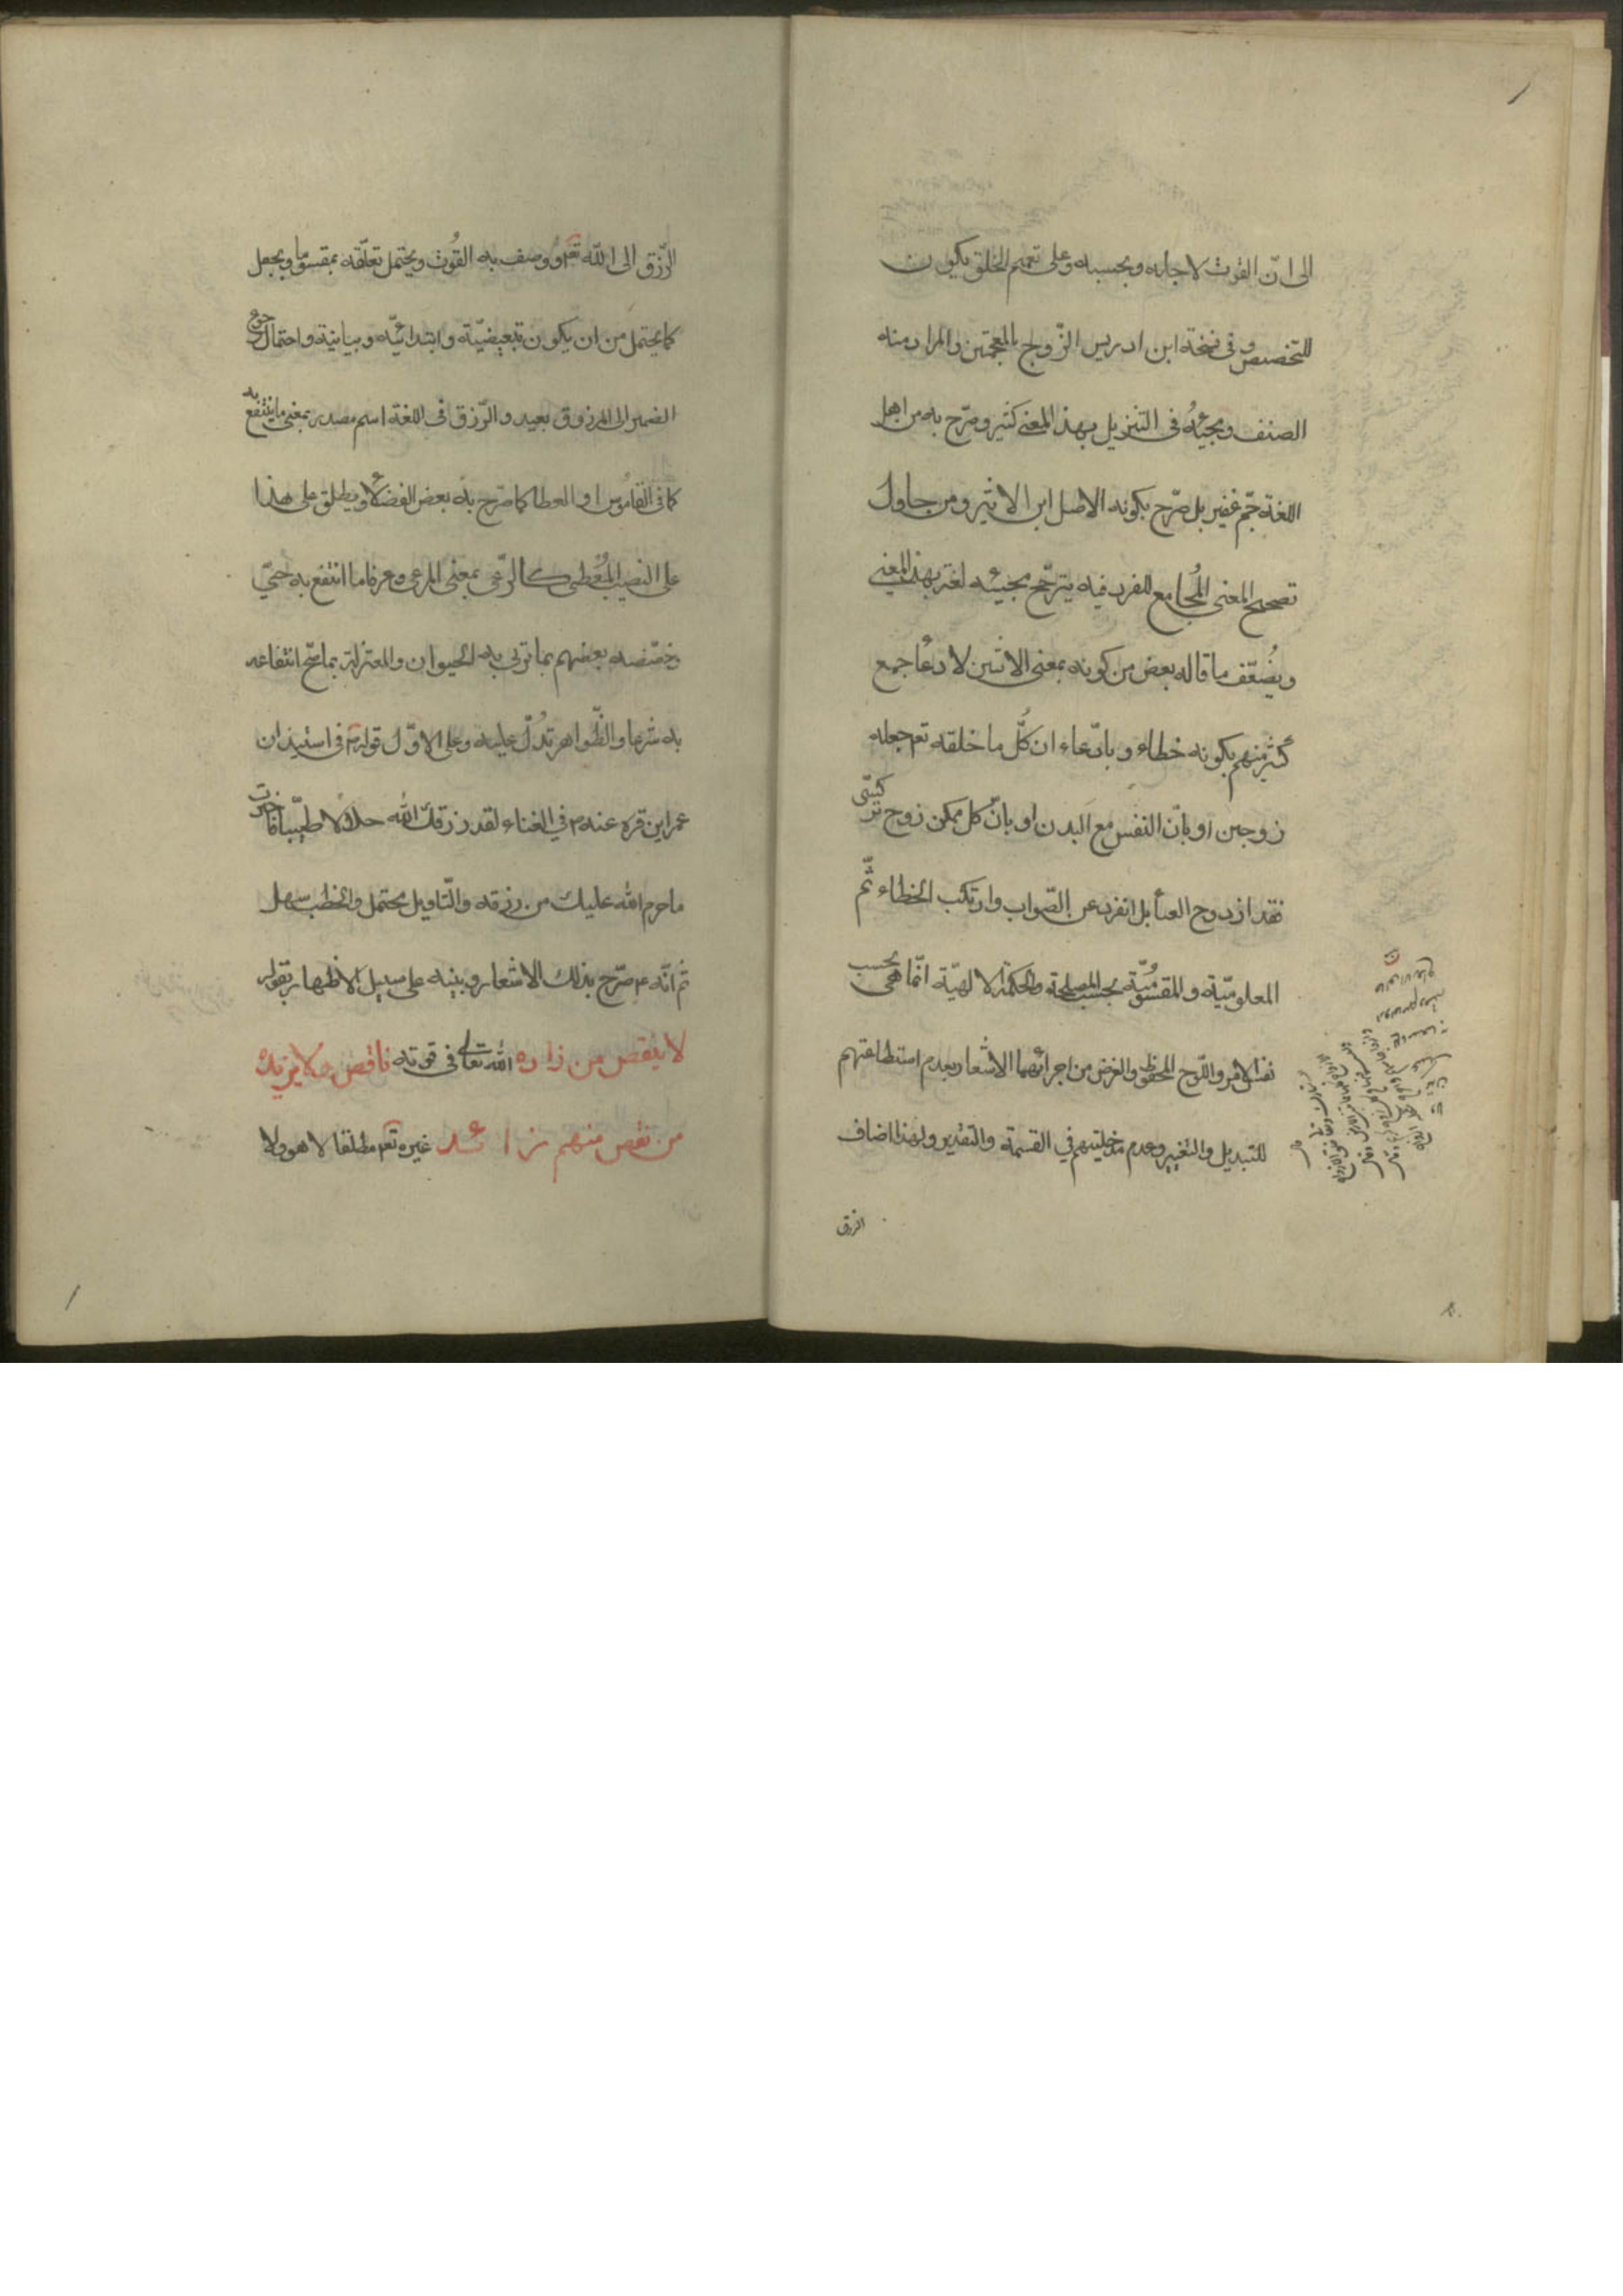 الى انّ القوت لاجله وبحسبه وعلى تعميم الخلق يكون
للتخصيص وفى نسخة ابن ادريس الزّوج بالمعجمتين والمراد منه
الصنف ومجيئُه فى التنزيل بهذا المعنى كثير وصرّح به من اهل
اللغة جمّ غفير بل صرّح بكونه الاصل ابن الاثير ومن حاول
تصحيح المعنى المجامع للفرد فيه يترجّح بمجيئه لغة بهذا المعنى
ويُضعّف ما قاله بعض من كونه بمعنى الاثنين لادعا جمع
كثير منهم بكونه خطاء وبادّعاء ان كلّ ما خلقه تع جعله
زوجين او بانّ النفس مع البدن او بانّ كل ممكن زوج تركيبّى
فقد ازدوج العنا بل انفرد عن الصّواب وارتكب الخطاء ثمّ
المعلوميّة والمقسوُميّة بحسب المصلحة والحكمة الالهيّة انّما هى بحسب
نفس الامر واللّوح المحفوظ والغرض من اجرائهما الاشعار بعدم استطاعتهم
للتبديل والتغيير وعدم مدخليتهم في القسمة والتقدير ولهذا اضاف
الرزق
الرّزق الى اللّه تع ووصف به القُوت ويحتمل تعلّقه بمقسوما وبجعل
كما يحتمل من ان يكون تبعيضيّة وابتدائيّه وبيانية واحتمال رجوع
الضمير الى المرزوق بعيد والرّزق فى اللغة اسم مصدر بمعنى ما ينتفع به
كما فى القاموس او العطا كما صرّح به بعض الفضلاء ويطلق على هذا
على النصيب المُعْطى كالرّعى بمعنى المرعى وعرفا ما انتفع به حىّ
وخصّصه بعضهم بما تربى به الحيوان والمعتزلة بما صحّ انتفاعه
به شرعا والظّواهر تدُلّ عليه وعلى الاوّل قوله فى استيذان
عمر ابن قره عنده في الغناء لقد رزقك الله حلالا طيّبا فاخترت
ما حرم الله عليك من رزقه والتّاويل محتمل والخطب سهل
ثم انّه ع صرّح بذلك الاشعار وبينه على سبيل الاظهار بقوله
لا ينقص من زاده الله تعالى فى قوته ناقص ولا يزيد
من نقص منهم زائد غيره تع مطلقا لا هو ولا